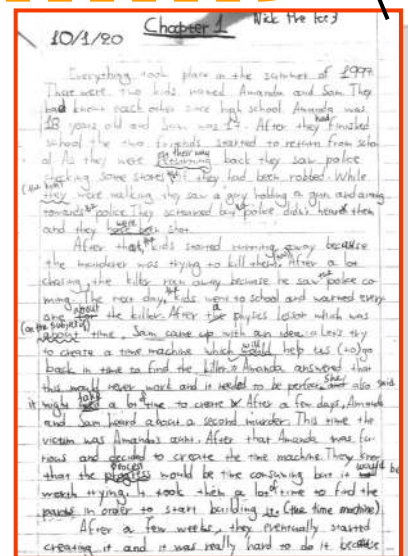 10/1/20
Chapter 1
Everything took place in the summer of 1997.
There were two kids named Amanda and Sam. They
had known each other since high school. Amanda was
18 years old and Sam was 17. After they had finished
school the two friends started to return from school
As they were on their way returning back they saw police
some stores they had been robbed. While
they were walking, they saw a guy holding a gun and aiming
towards the police. They screamed but the police didn't them
and they were shot.
After that the kids started running away because
the murderer was trying to kill them too. After a lot
chasing, the killer ran away because he saw the police co
ming. The next day, the kids went to school and warned every
one about the killer. After the physics lesson which was
(on the subject of) about time, Sam came up with an idea. Let's try
to create a time machine which will help us (to) go
back in time to find the killer. Amanda answered that
this would never work and it needed to be perfect she also said
it might take a lot of time to create. After a few days, Amanda
and Sam heard about a second murder. This time the
victim was Amanda's aunt. After that Amanda was fu
rious and decided to create the time machine. They knew
that the process would be time consuming but it would be
worth trying. It took them a lot of time to find the
parts in order to start building it. (the time machine)
After a few weeks, they eventually started
creating it and it was really hard to do it because